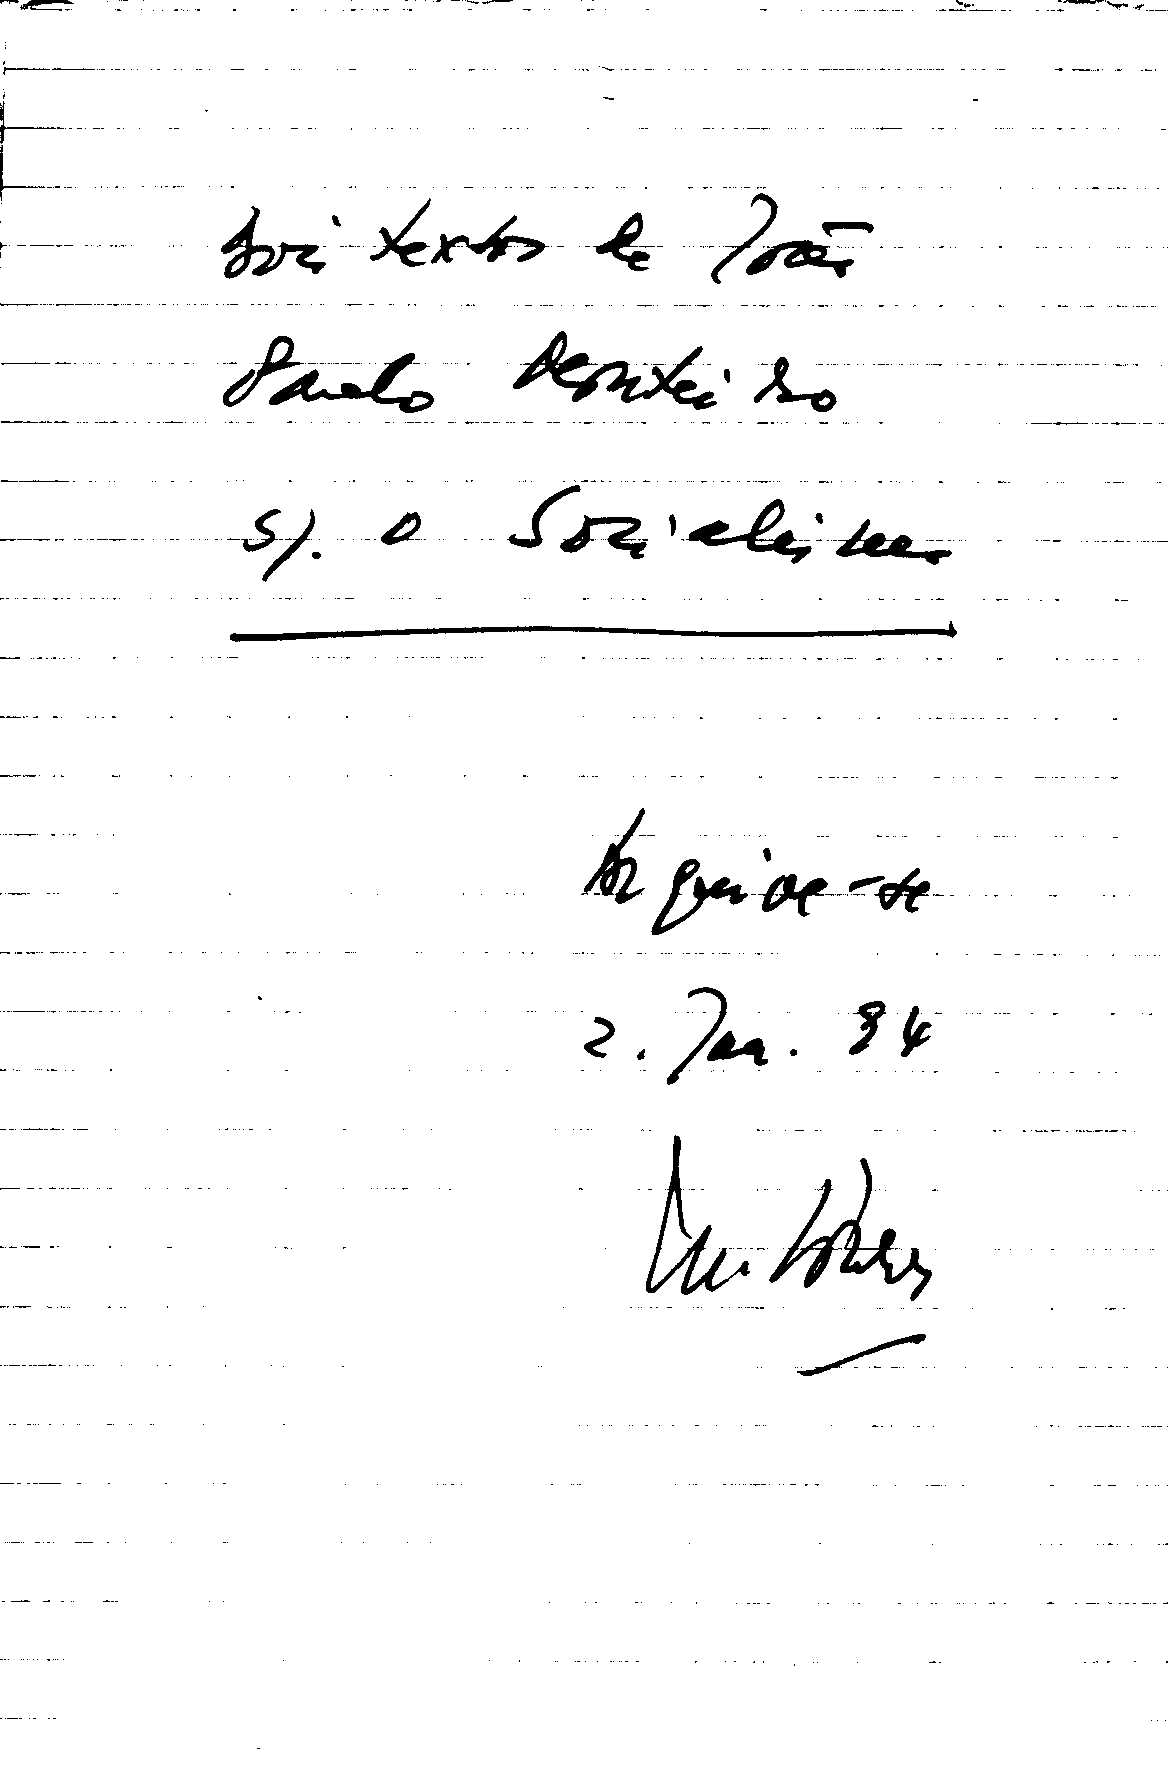 Dois textos de João
Paulo Monteiro
s/. o Socialismo
Arquive-se
2. Jan. 84